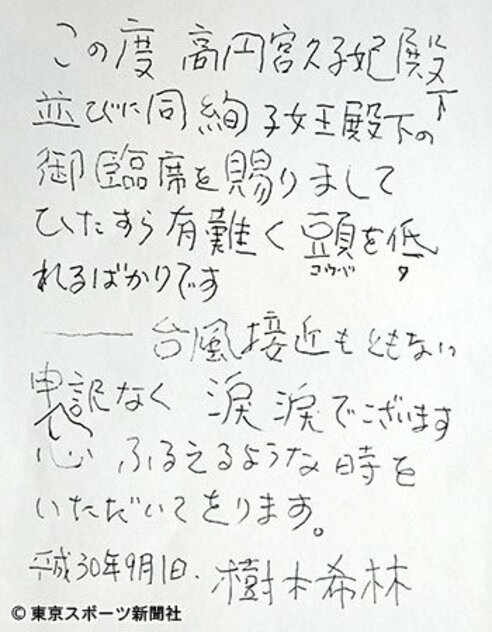 この度 高円宮久子妃殿下
並びに同 絢子女王殿下の
御臨席を賜りまして
ひたすら有難く 頭を低
コウベ タ
れるばかりです
―― 台風接近もともない
申訳なく 涙 涙でございます
心 ふるえるような時を
いただいてをります。
平成30年9月1日. 樹木希林
© 東京スポーツ新聞社